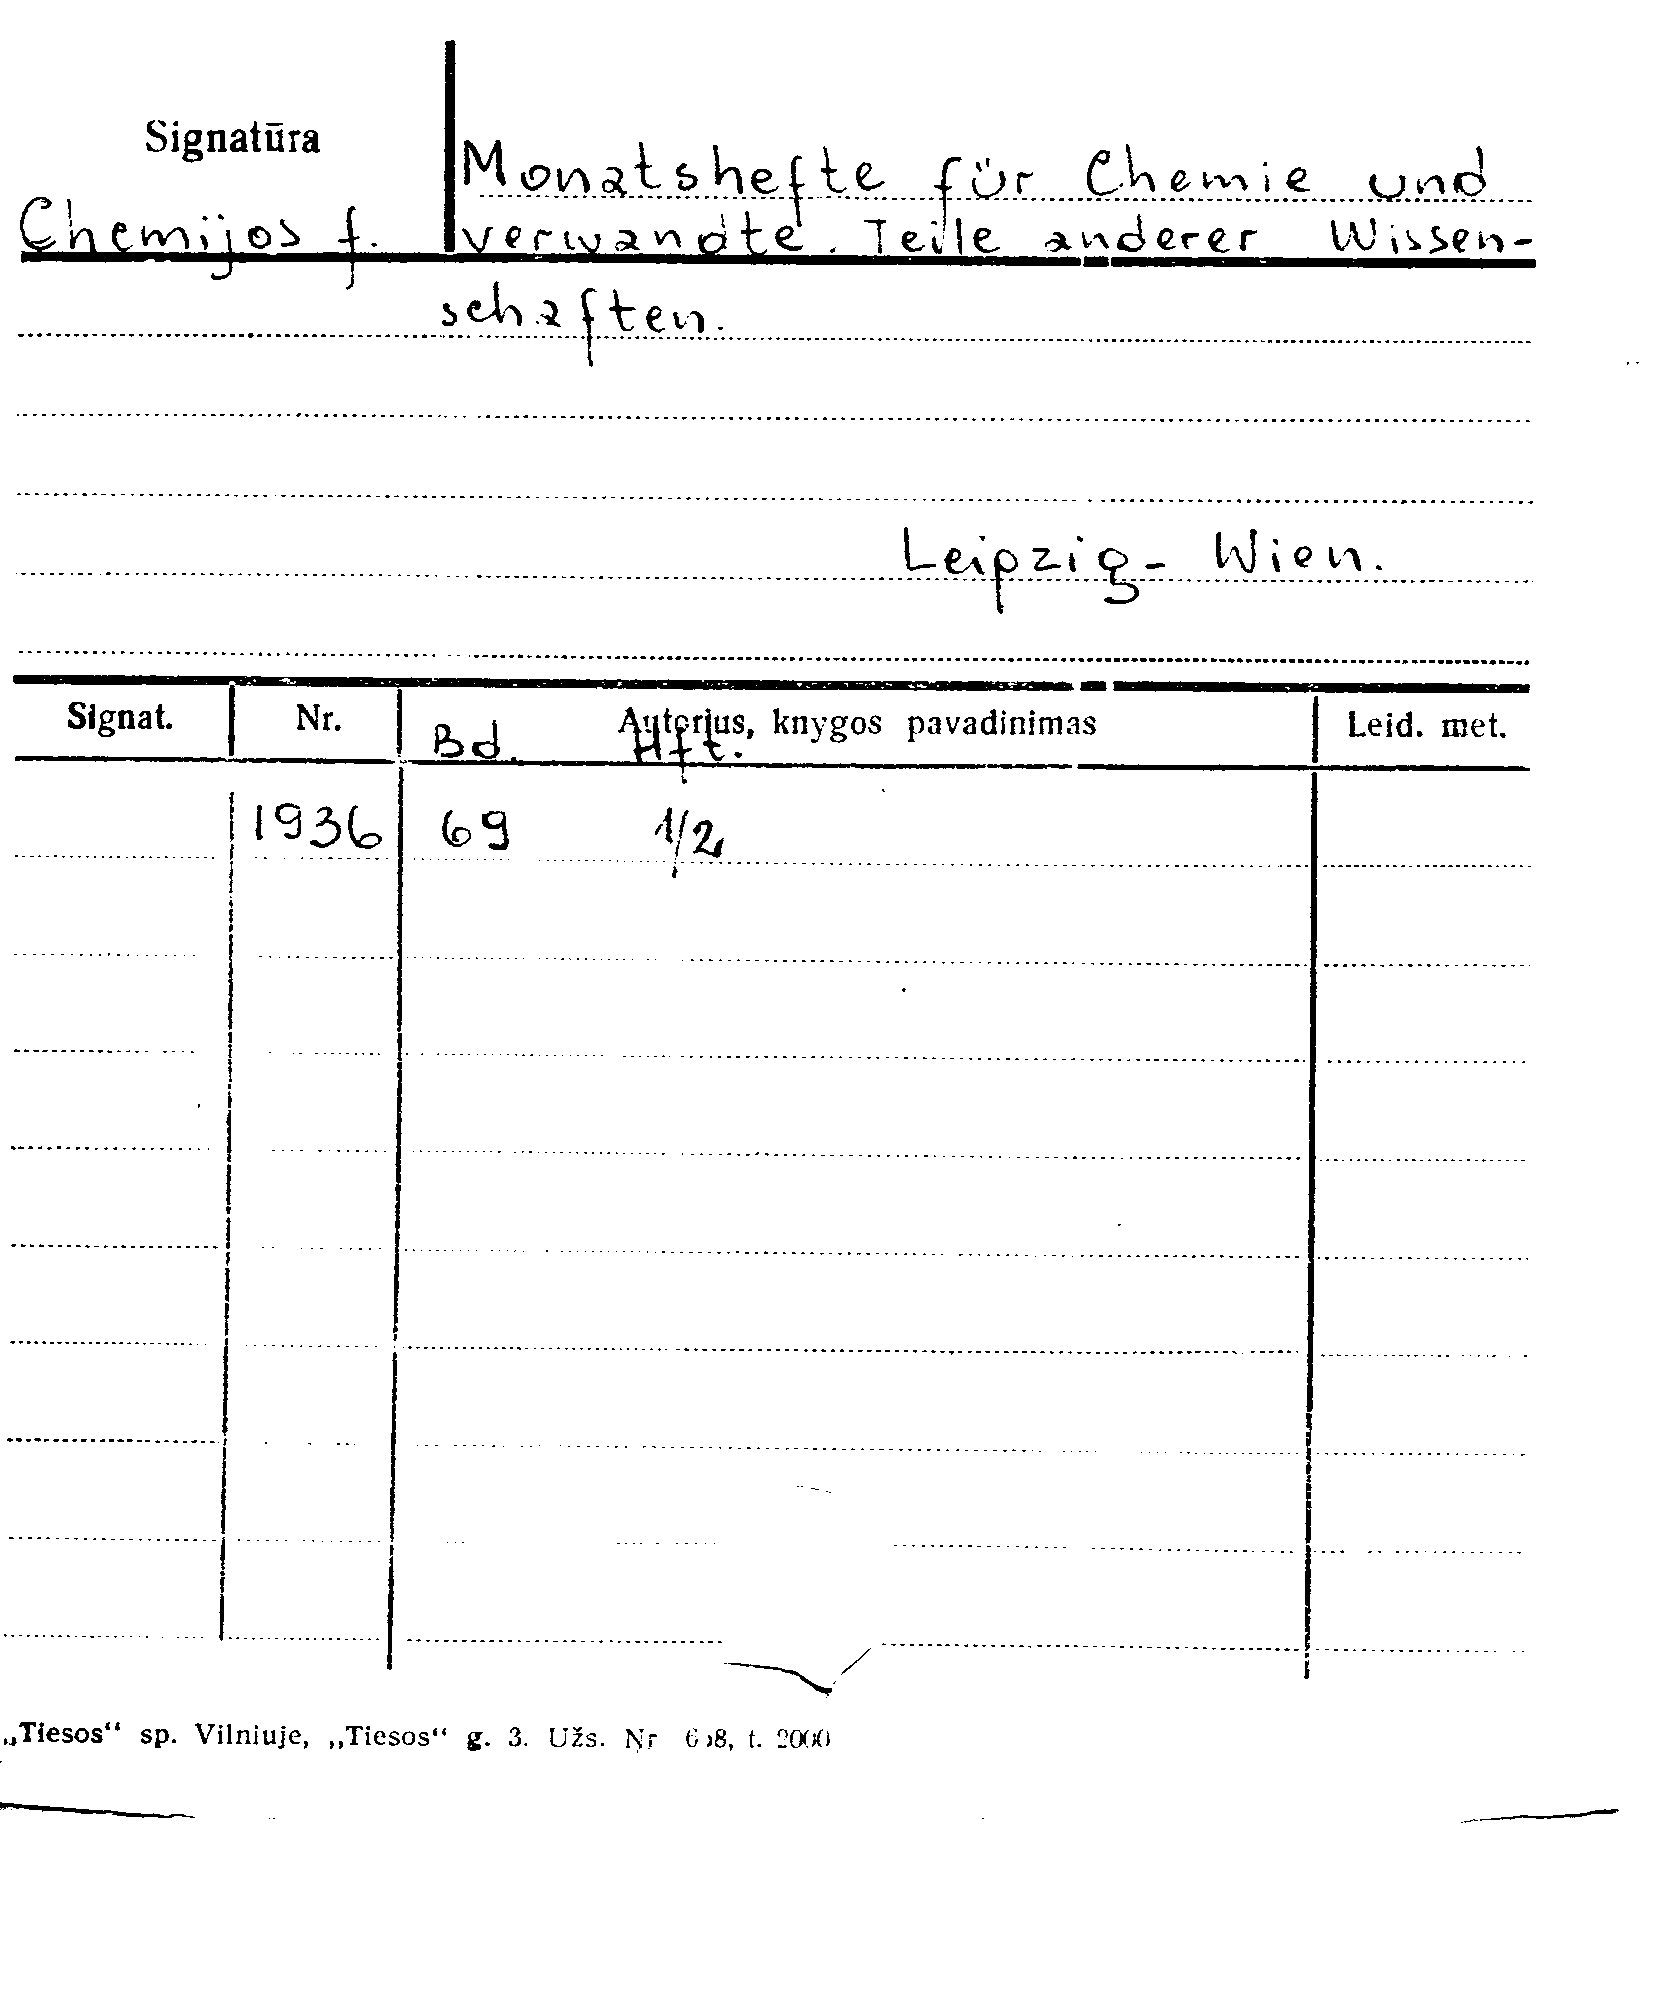 Signatūra
Monatshefte für Chemie und
Chemijos f. verwandte Teile anderer Wissen-
schaften.
Leipzig- Wien.
Signat. Nr. Autorius, knygos pavadinimas Leid. met.
Bd. Hft.
1936 69 1/2
„Tiesos“ sp. Vilniuje, „Tiesos“ g. 3. Užs. Nr t. 2000